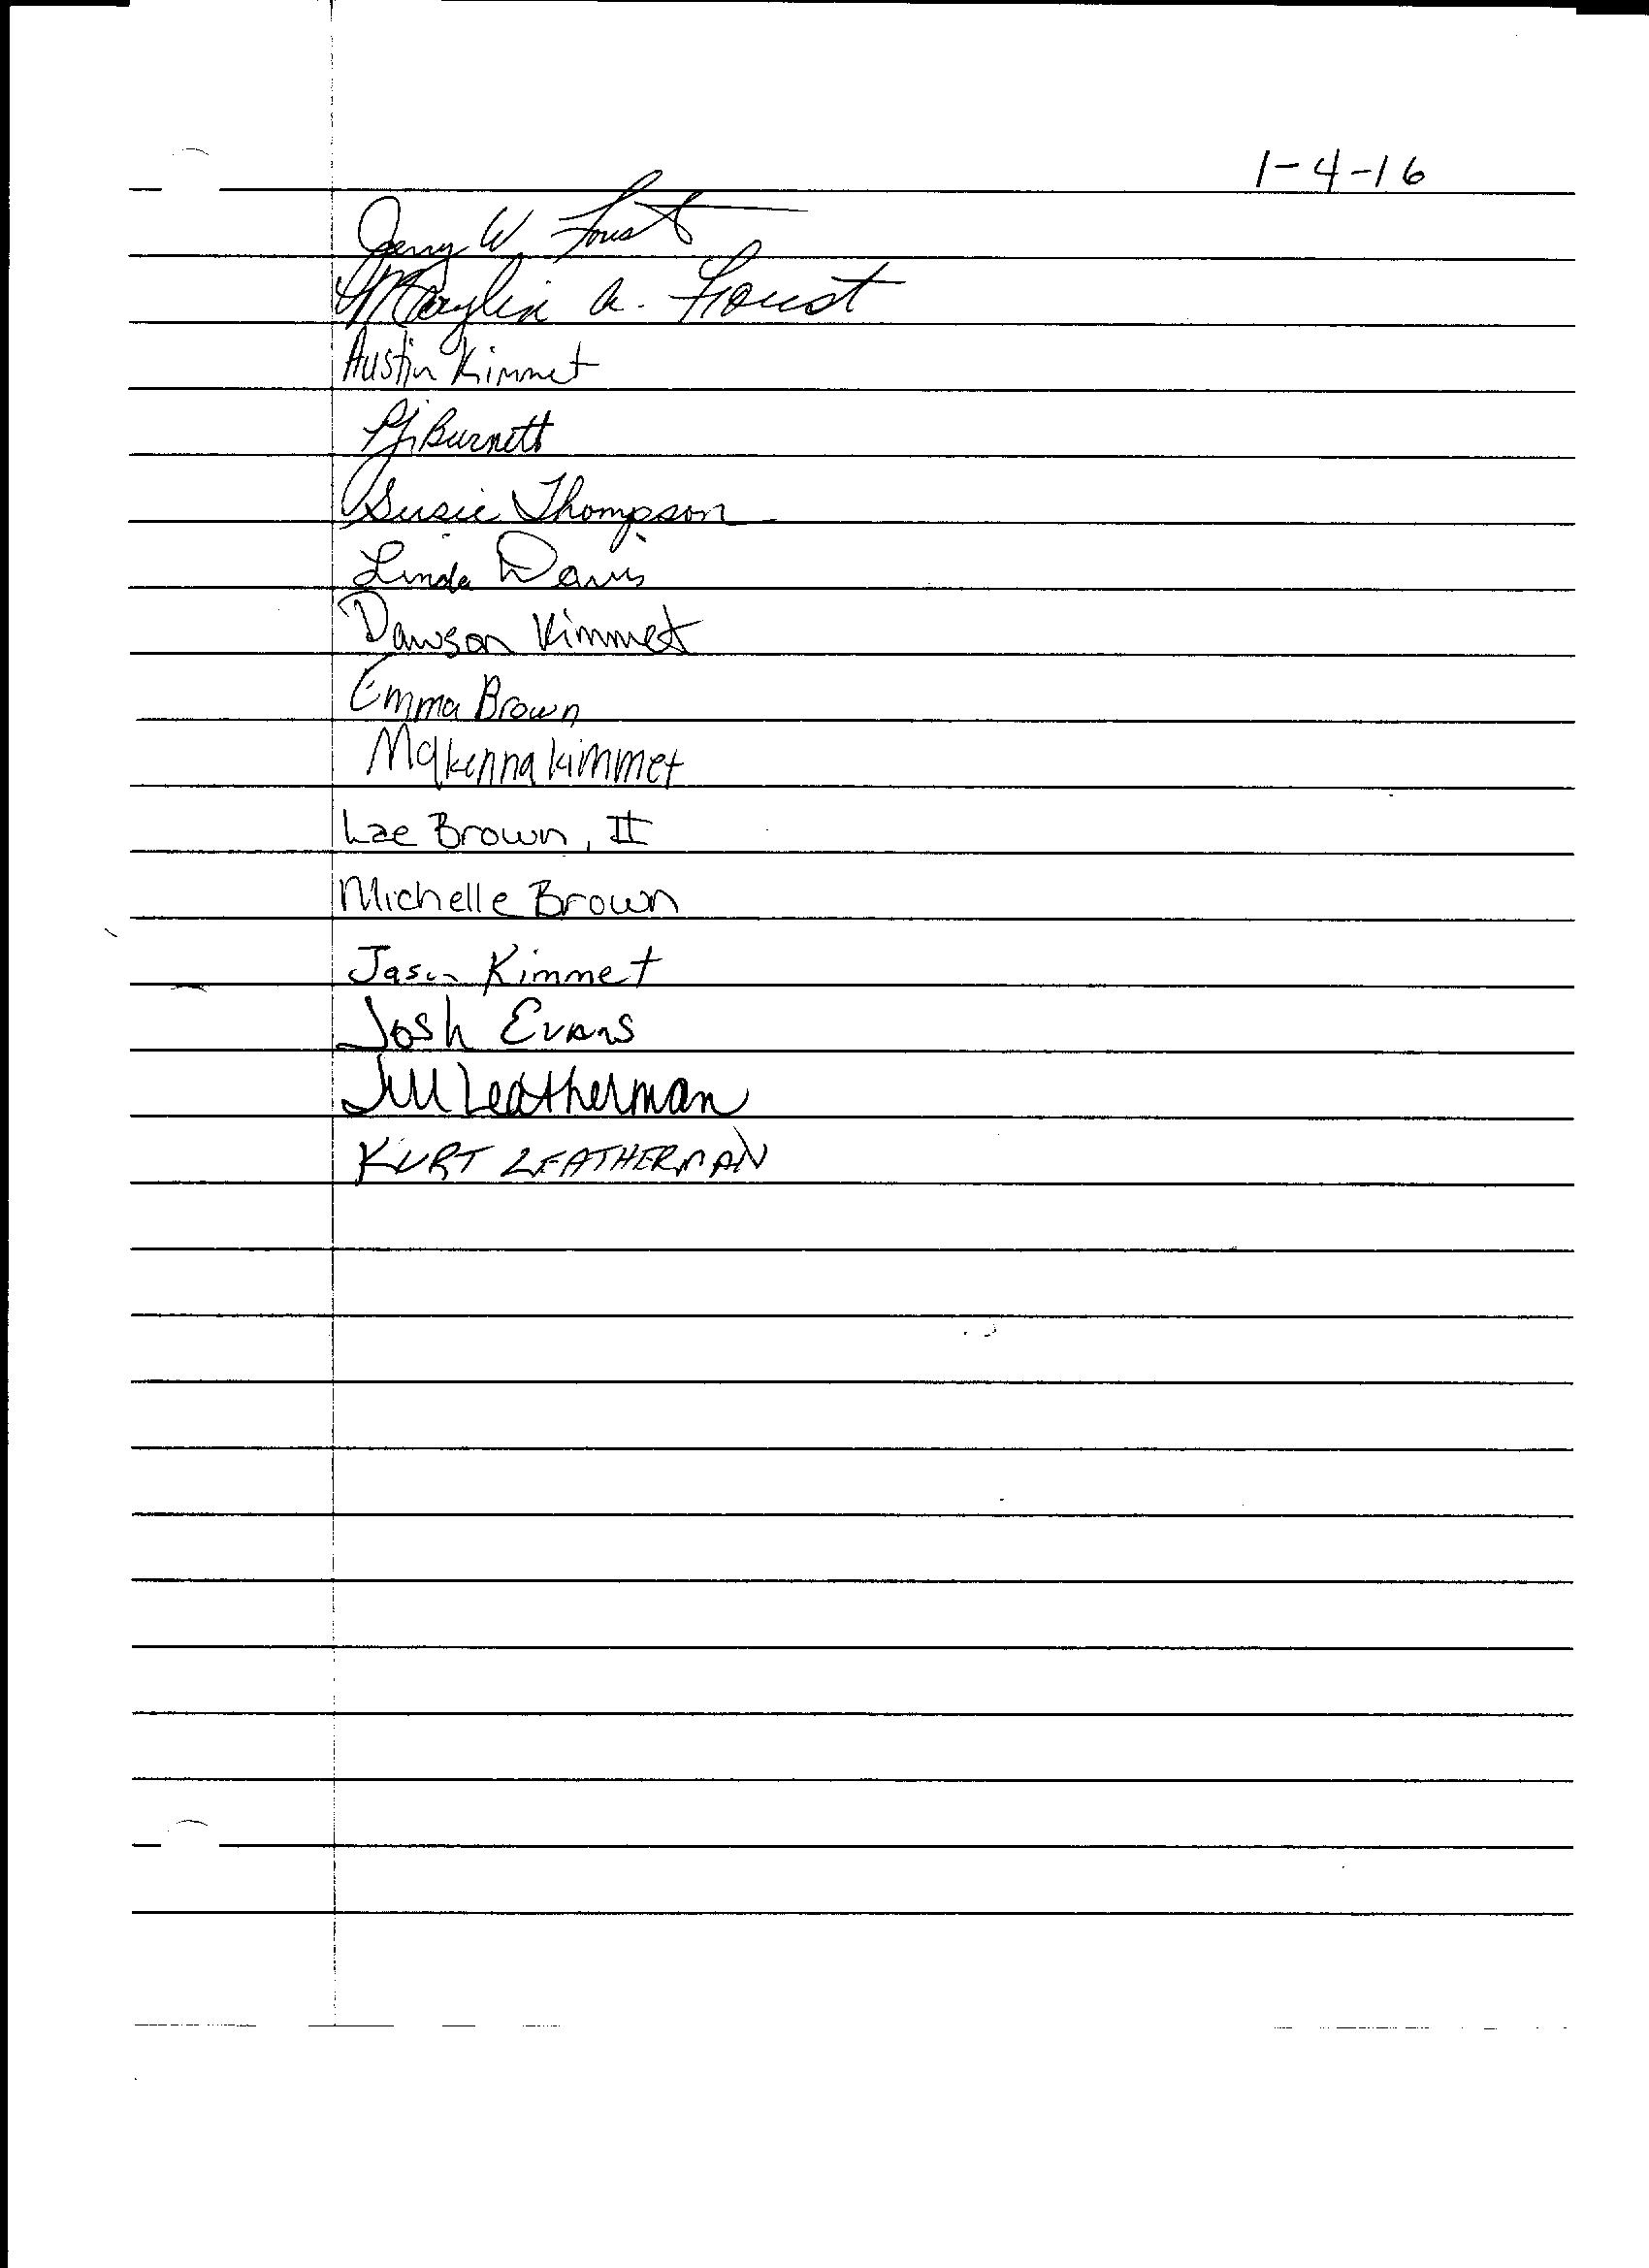 1-4-16
Jerry W. Foust
A. Foust
Austin Kimmet
PJ Burnett
Susie Thompson
Linda Davis
Dawson Kimmet
Emma Brown
Makenna kimmet
Lee Brown, II
Michelle Brown
Jason Kimmet
Josh Evans
Jill Leatherman
KURT LEATHERMAN